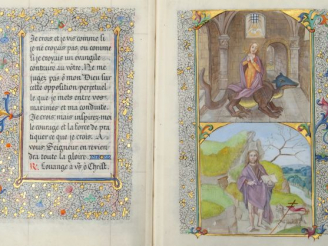 Je crois et je vis comme si
je ne croyais pas, ou comme
si je croyais un évangile
contraire au vôtre. Ne me
jugez pas ô mon Dieu sur
cette opposition perpétuel
le que je mets entre vos
maximes et ma conduite.
Je crois. Mais inspirez-moi
le courage et la force de pra
tiquer ce que je crois. A
vous Seigneur en revien
dra toute la gloire.
R. Louange à vs ô Christ.